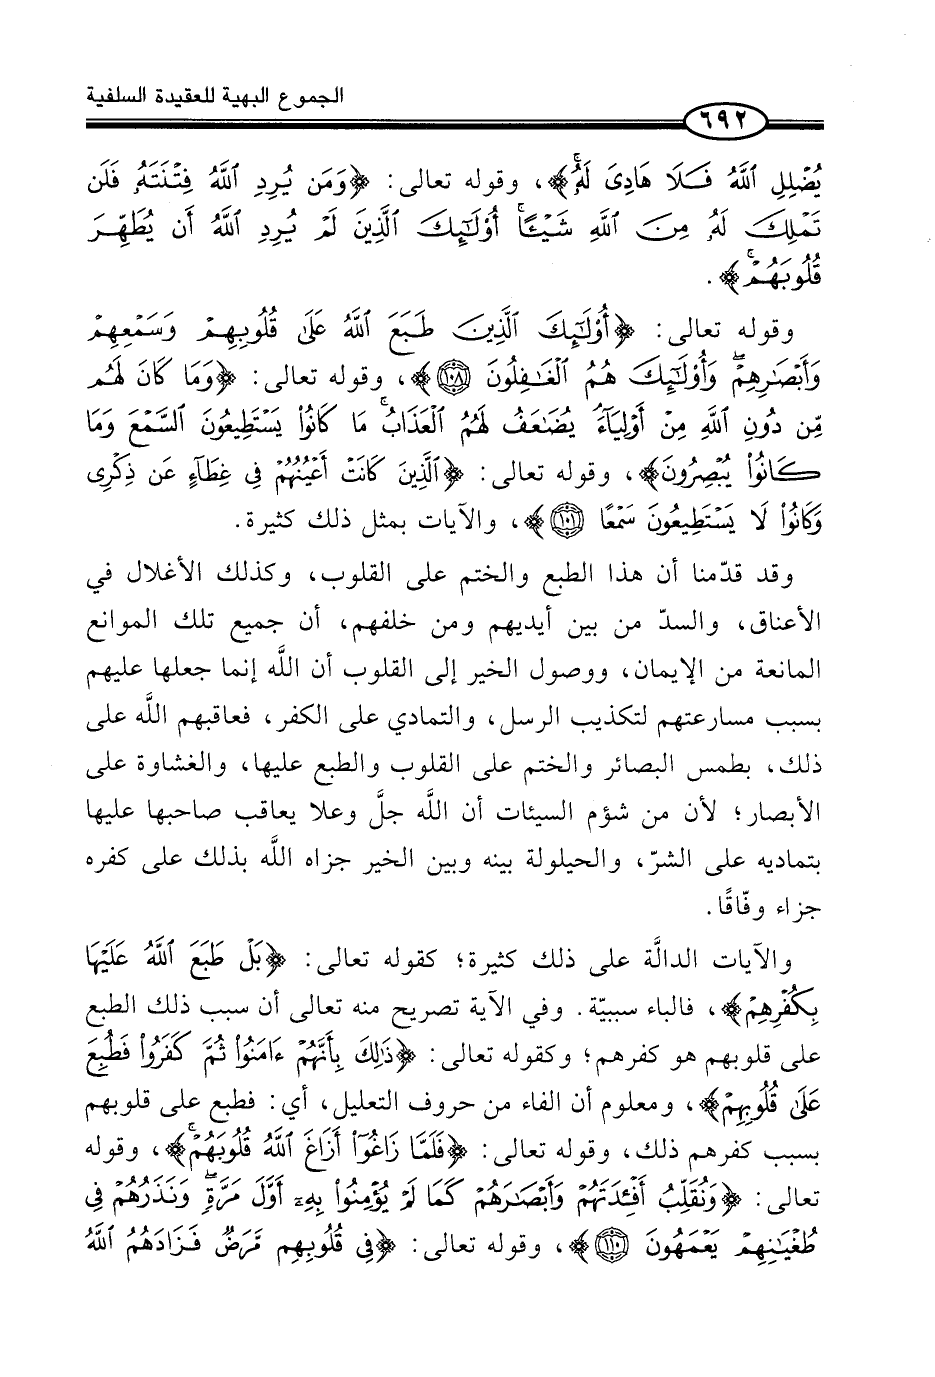 الجموع البهية للعقيدة السلفية
٦٩٢
يُضْلِلِ ٱللَّهُ فَلَا هَادِىَ لَهُۥۚ﴾، وقوله تعالى: ﴿وَمَن يُرِدِ ٱللَّهُ فِتْنَتَهُۥ فَلَن
تَمْلِكَ لَهُۥ مِنَ ٱللَّهِ شَيْـًٔاۚ أُو۟لَـٰٓئِكَ ٱلَّذِينَ لَمْ يُرِدِ ٱللَّهُ أَن يُطَهِّرَ
قُلُوبَهُمْۚ﴾.
وقوله تعالى: ﴿أُو۟لَـٰٓئِكَ ٱلَّذِينَ طَبَعَ ٱللَّهُ عَلَىٰ قُلُوبِهِمْ وَسَمْعِهِمْ
وَأَبْصَـٰرِهِمْۖ وَأُو۟لَـٰٓئِكَ هُمُ ٱلْغَـٰفِلُونَ ١٠٨﴾، وقوله تعالى: ﴿وَمَا كَانَ لَهُم
مِّن دُونِ ٱللَّهِ مِنْ أَوْلِيَآءَۘ يُضَـٰعَفُ لَهُمُ ٱلْعَذَابُۚ مَا كَانُوا۟ يَسْتَطِيعُونَ ٱلسَّمْعَ وَمَا
كَانُوا۟ يُبْصِرُونَ﴾، وقوله تعالى: ﴿ٱلَّذِينَ كَانَتْ أَعْيُنُهُمْ فِى غِطَآءٍ عَن ذِكْرِى
وَكَانُوا۟ لَا يَسْتَطِيعُونَ سَمْعًا ١٠١﴾، والآيات بمثل ذلك كثيرة.
وقد قدّمنا أن هذا الطبع والختم على القلوب، وكذلك الأغلال في
الأعناق، والسدّ من بين أيديهم ومن خلفهم، أن جميع تلك الموانع
المانعة من الإيمان، ووصول الخير إلى القلوب أن اللَّه إنما جعلها عليهم
بسبب مسارعتهم لتكذيب الرسل، والتمادي على الكفر، فعاقبهم اللَّه على
ذلك، بطمس البصائر والختم على القلوب والطبع عليها، والغشاوة على
الأبصار؛ لأن من شؤم السيئات أن اللَّه جلَّ وعلا يعاقب صاحبها عليها
بتماديه على الشرّ، والحيلولة بينه وبين الخير جزاه اللَّه بذلك على كفره
جزاء وفّاقًا.
والآيات الدالَّة على ذلك كثيرة؛ كقوله تعالى: ﴿بَلْ طَبَعَ ٱللَّهُ عَلَيْهَا
بِكُفْرِهِمْ﴾، فالباء سببيّة. وفي الآية تصريح منه تعالى أن سبب ذلك الطبع
على قلوبهم هو كفرهم؛ وكقوله تعالى: ﴿ذَٰلِكَ بِأَنَّهُمْ ءَامَنُوا۟ ثُمَّ كَفَرُوا۟ فَطُبِعَ
عَلَىٰ قُلُوبِهِمْ﴾، ومعلوم أن الفاء من حروف التعليل، أي: فطبع على قلوبهم
بسبب كفرهم ذلك، وقوله تعالى: ﴿فَلَمَّا زَاغُوٓا۟ أَزَاغَ ٱللَّهُ قُلُوبَهُمْۚ﴾، وقوله
تعالى: ﴿وَنُقَلِّبُ أَفْـِٔدَتَهُمْ وَأَبْصَـٰرَهُمْ كَمَا لَمْ يُؤْمِنُوا۟ بِهِۦٓ أَوَّلَ مَرَّةٍۖ وَنَذَرُهُمْ فِى
طُغْيَـٰنِهِمْ يَعْمَهُونَ ١١٠﴾، وقوله تعالى: ﴿فِى قُلُوبِهِم مَّرَضٌ فَزَادَهُمُ ٱللَّهُ